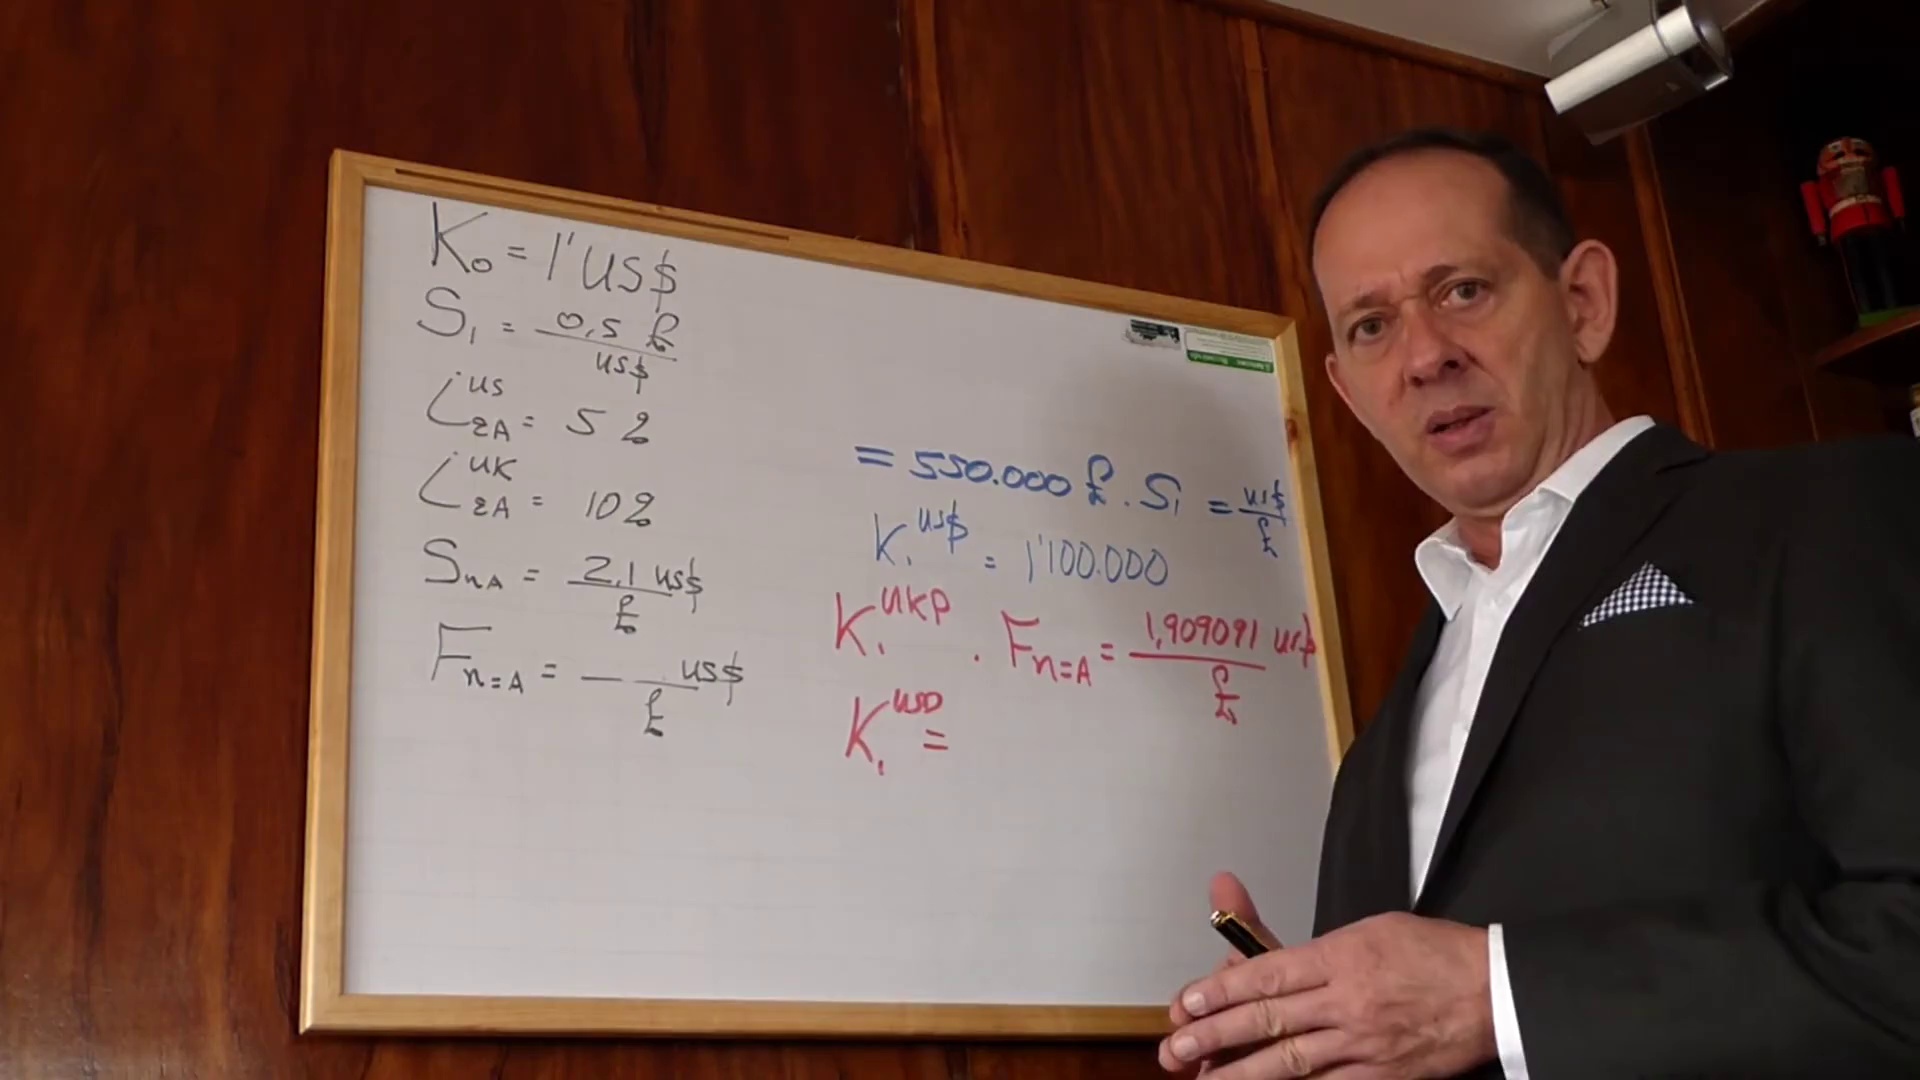 K₀ = 1' US$
S₁ = 0,5 £
US$
i US
2A = 5 %
i UK
2A = 10 %
SnA = 2,1 US$
£
Fn=A = US$
£
= 550.000 £ . S₁ = US$
£
K₁ US$ = 1'100.000
K₁ UKP . Fn=A = 1,909091 US$
£
K₁ USD =